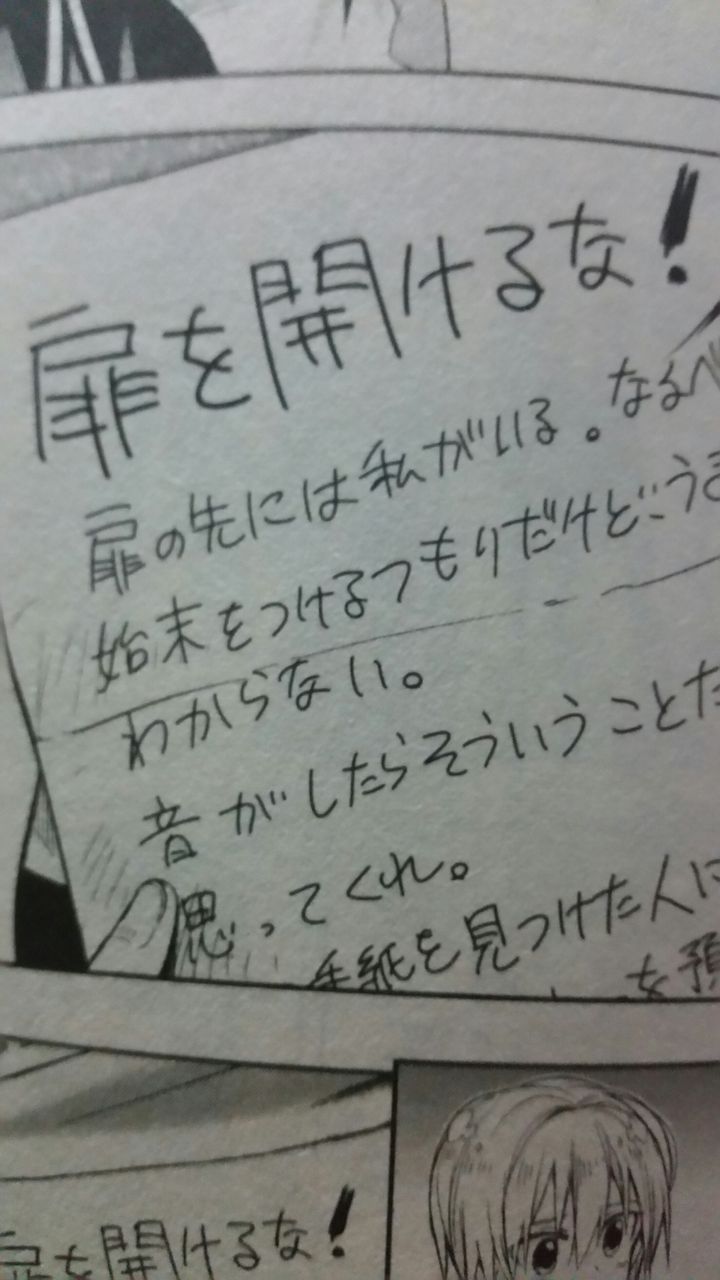 扉を開けるな!
扉の先には私がいる。なるべ
始末をつけるつもりだけど…うま
わからない。
音がしたらそういうことだ
思ってくれ。
手紙を見つけた人に
を預
扉を開けるな!